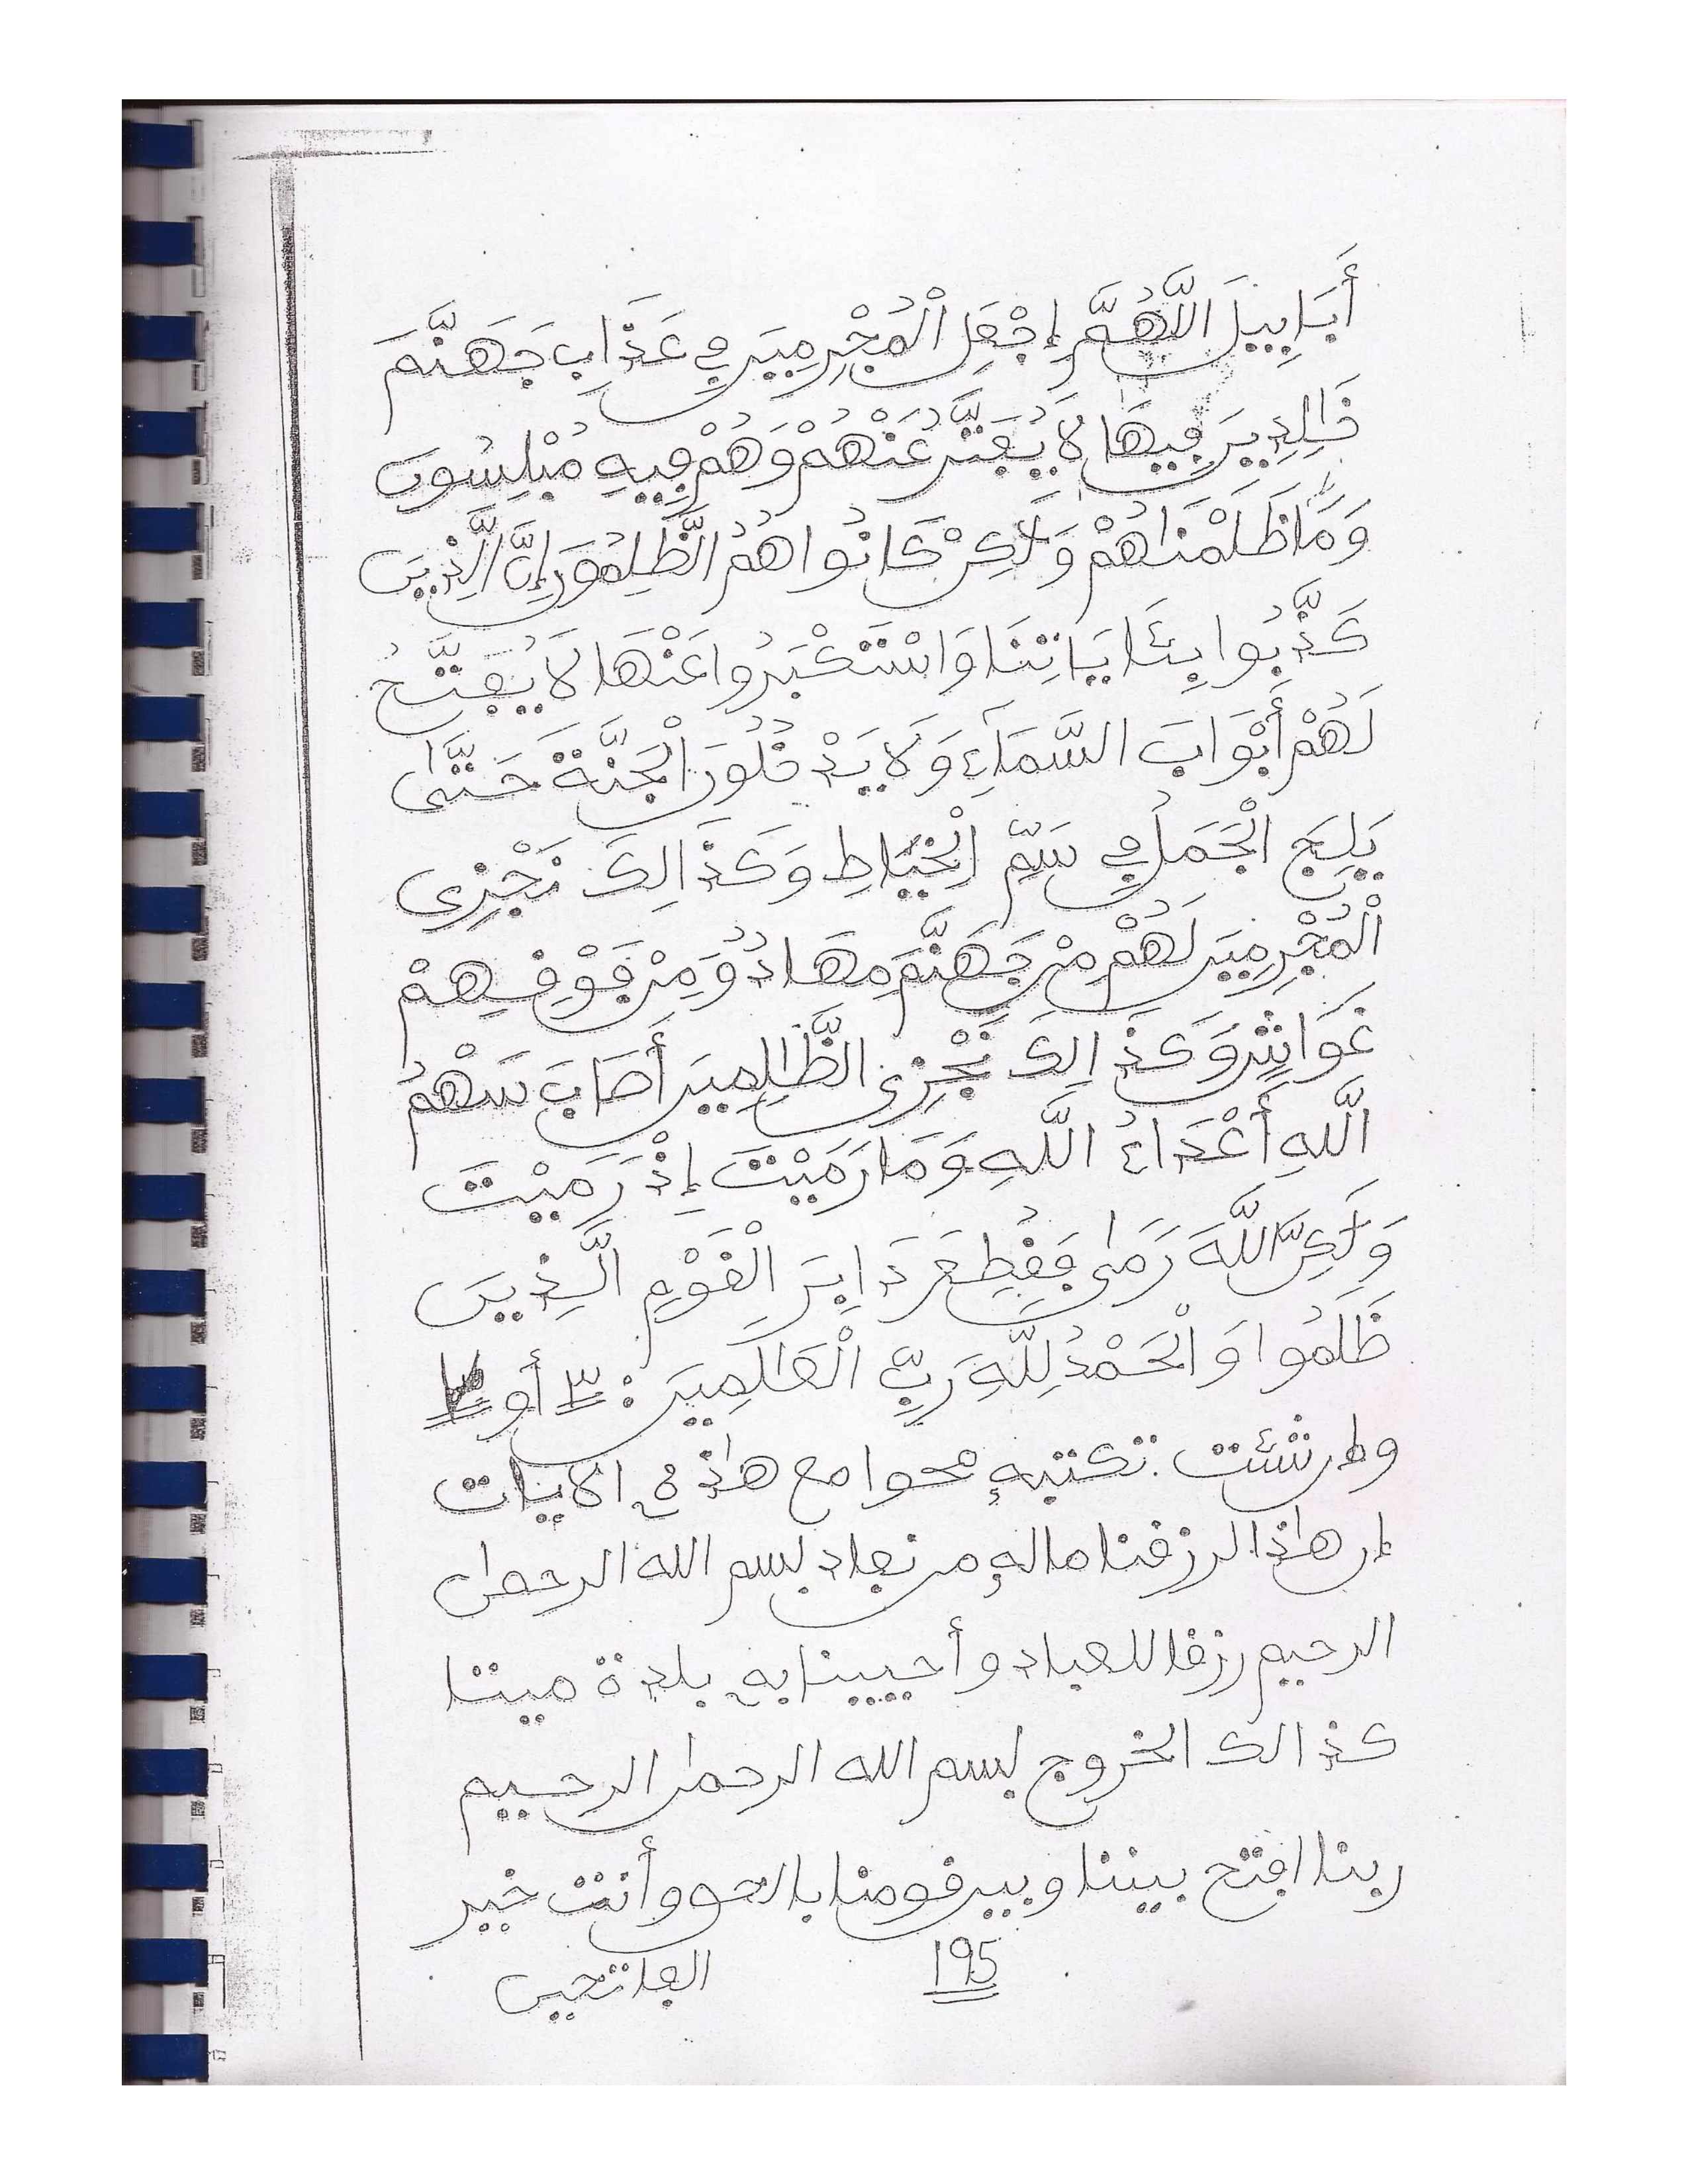 أَبَابِيلَ اللَّهُمَّ إِجْعَلِ الْمُجْرِمِينَ فِي عَذَابِ جَهَنَّمَ
خَالِدِينَ فِيهَا لَا يُفَتَّرُ عَنْهُمْ وَهُمْ فِيهِ مُبْلِسُونَ
وَمَا ظَلَمْنَاهُمْ وَلَٰكِنْ كَانُوا هُمُ الظَّلِمُونَ إِنَّ الَّذِينَ
كَذَّبُوا بِئَايَاتِنَا وَاسْتَكْبَرُوا عَنْهَا لَا يُفَتَّحُ
لَهُمْ أَبْوَابَ السَّمَاءِ وَلَا يَدْخُلُونَ الْجَنَّةَ حَتَّىٰ
يَلِجَ الْجَمَلُ فِي سَمِّ الْخِيَاطِ وَكَذَالِكَ نَجْزِي
الْمُجْرِمِينَ لَهُمْ مِنْ جَهَنَّمَ مِهَادٌ وَمِنْ فَوْقِهِمْ
غَوَاشٍ وَكَذَالِكَ نَجْزِي الظَّالِمِينَ أَصَابَ سَهْمُ
اللَّهِ أَعْدَاءُ اللَّهِ وَمَا رَمَيْتَ إِذْ رَمَيْتَ
وَلَٰكِنَّ اللَّهَ رَمَىٰ فَقُطِعَ دَابِرَ الْقَوْمِ الَّذِينَ
ظَلَمُوا وَالْحَمْدُ لِلَّهِ رَبِّ الْعَالَمِينَ : ٣ أو
وإن شئت تكتبه محوا مع هٰذه الايات
إن هٰذا لرزقنا ماله من نفاد بسم الله الرحمٰن
الرحيم رزقا للعباد وأحيينا به بلدة ميتا
كذالك الخروج بسم الله الرحمٰن الرحيم
ربنا افتح بيننا وبين قومنا بالحق وأنت خير
الفاتحين
195